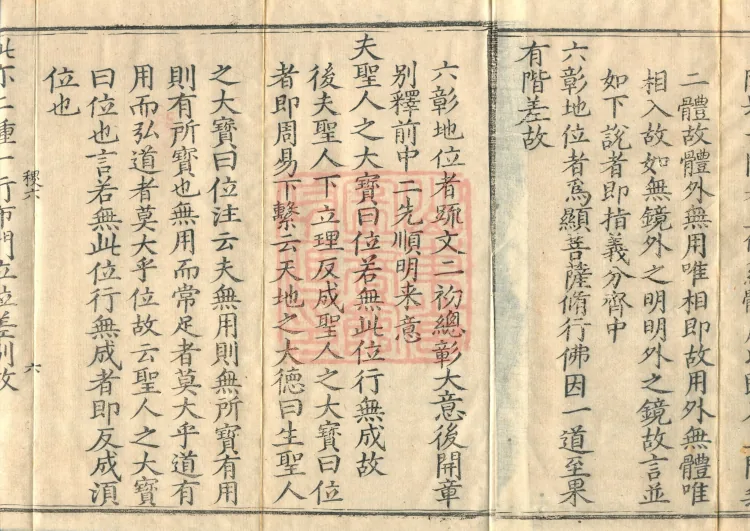 二體故體外無用唯相即故用外無體唯
相入故如無鏡外之明明外之鏡故言並
如下説者即指義分齊中
六彰地位者爲顯菩薩脩行佛因一道至果
有階差故
六彰地位者疏文二初總彰大意後開章
別釋前中二先順明来意
夫聖人之大寶曰位若無此位行無成故
後夫聖人下立理反成聖人之大寶曰位
者即周易下繫云天地之大德曰生聖人
之大寶曰位注云夫無用則無所寶有用
則有所寶也無用而常足者莫大乎道有
用而弘道者莫大乎位故云聖人之大寶
曰位也言若無此位行無成者即反成湏
位也
稧六
六
此亦二種一行布門立位差別故